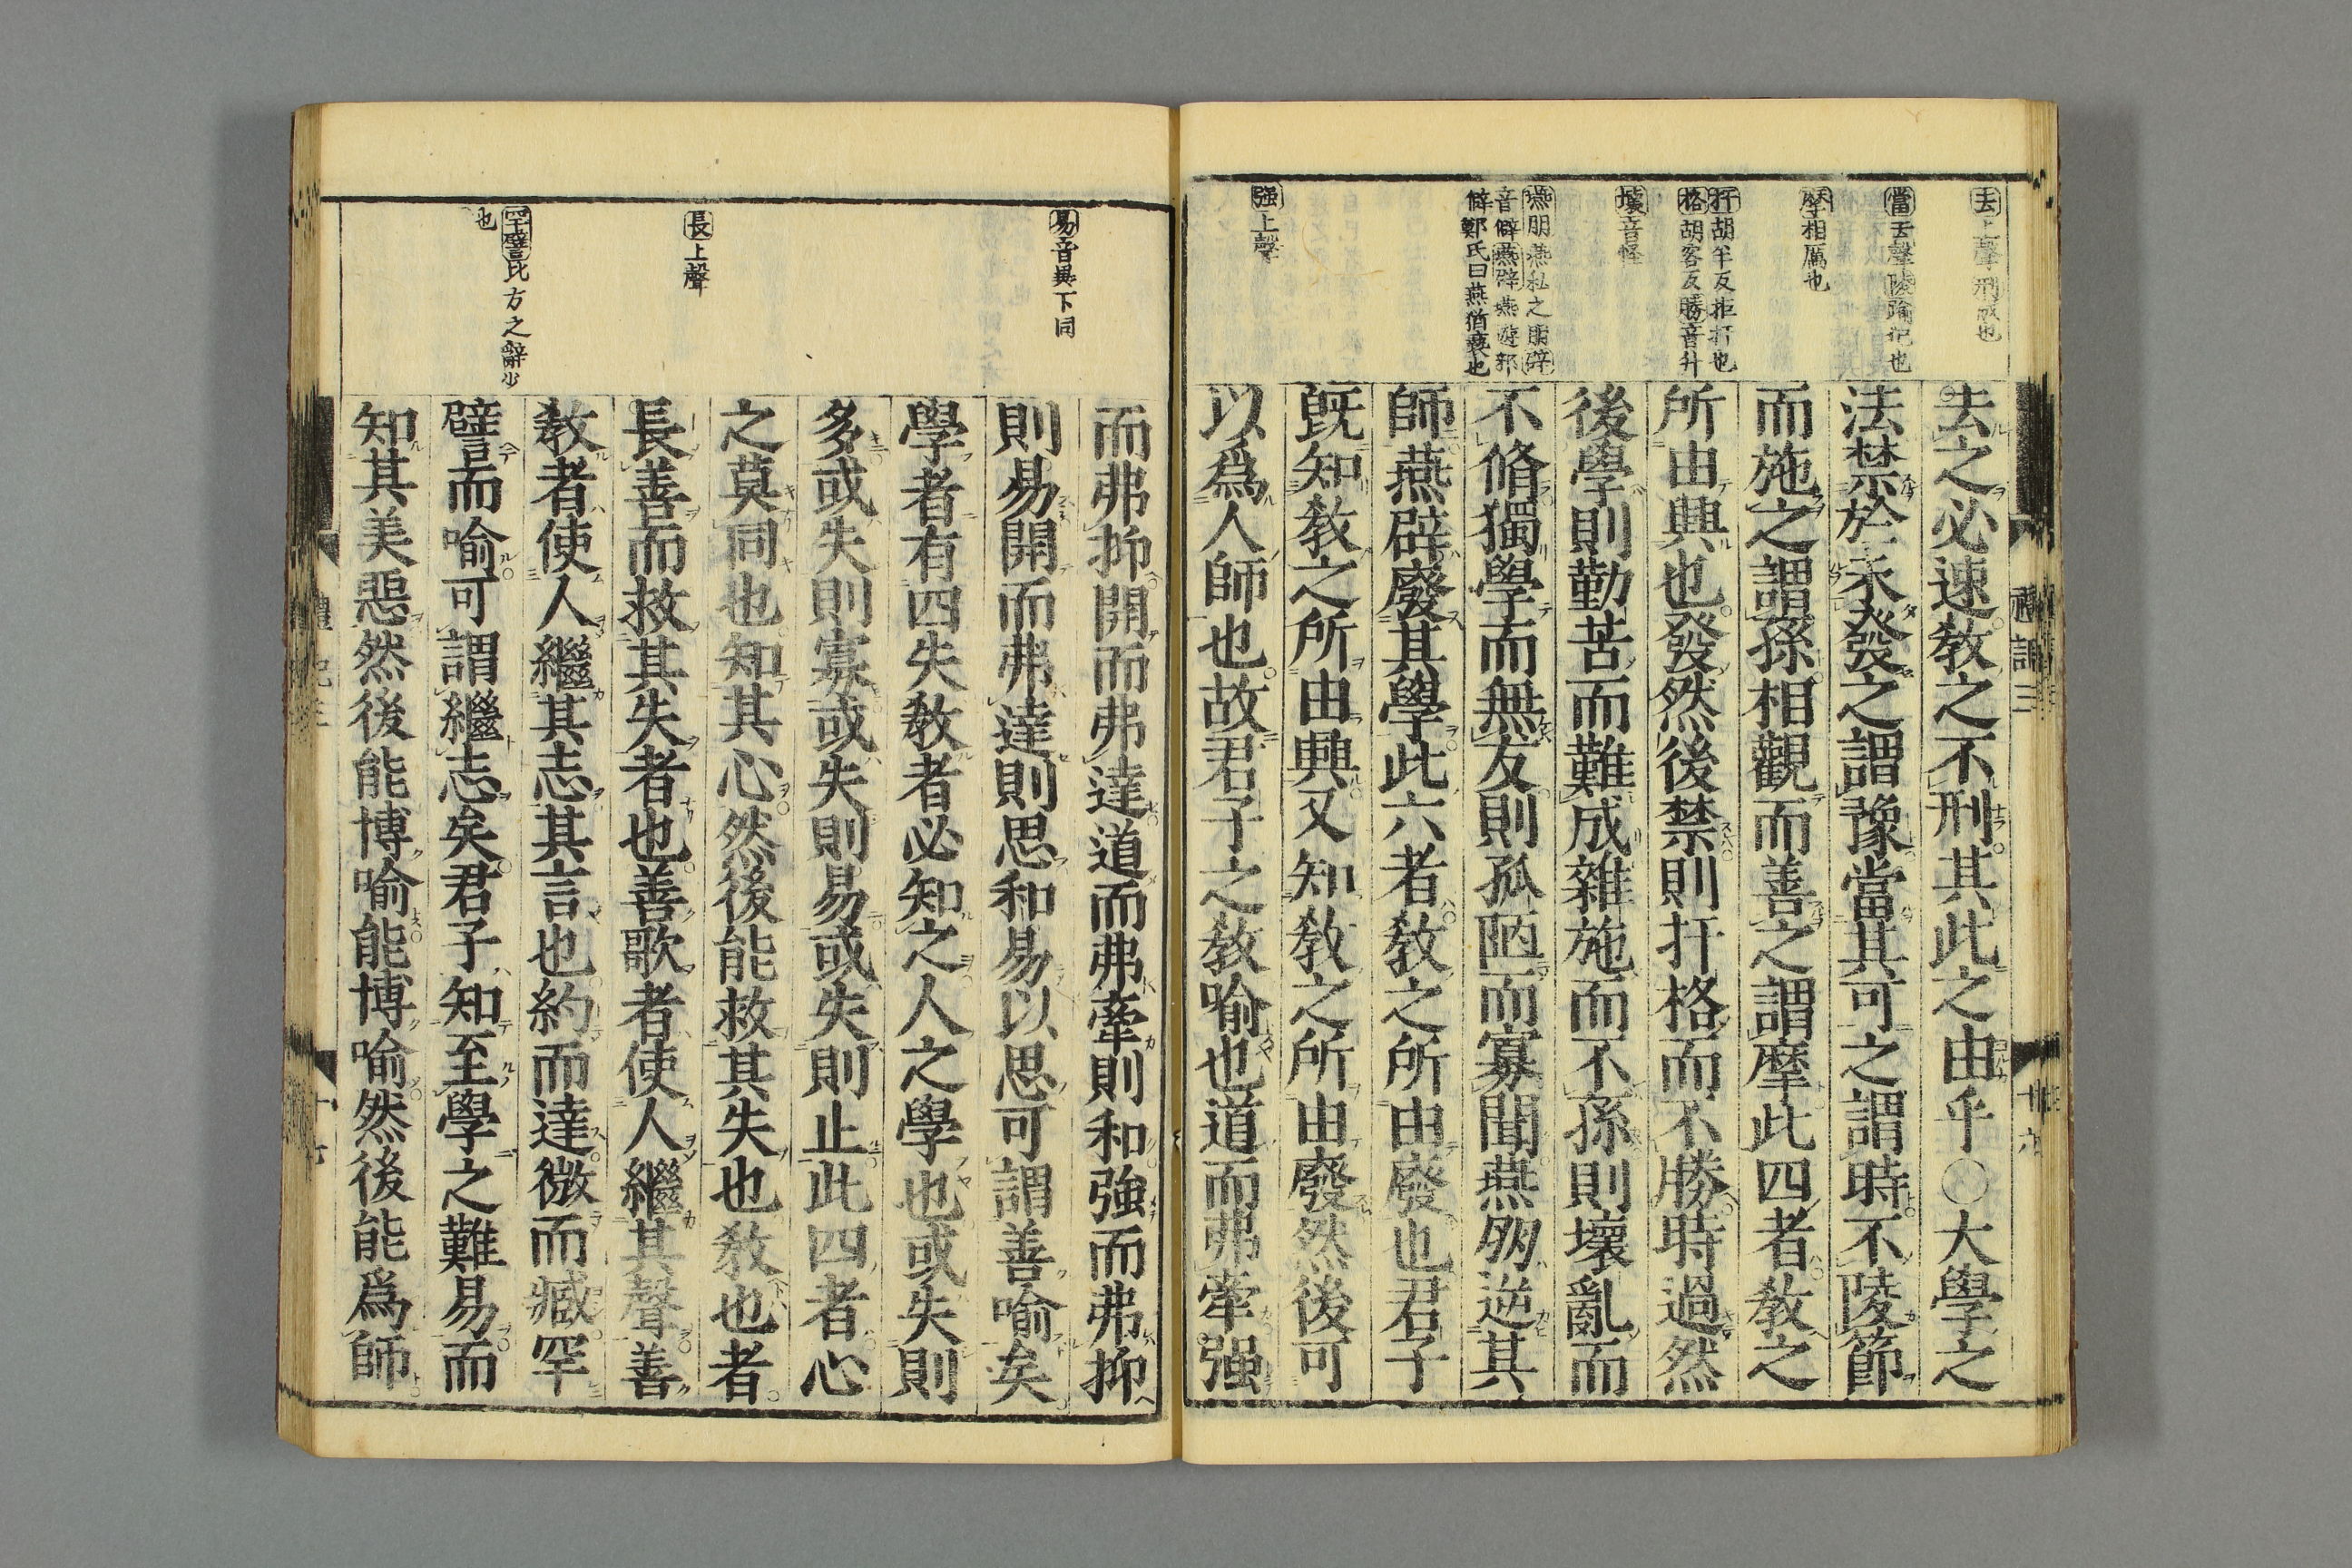 去上聲刑成也
當去聲陵踰犯也
摩相厲也
扞胡半反拒扞也
格胡客反勝音升
壞音怪
燕朋燕私之朋辟
音僻燕辟燕遊邪
僻鄭氏曰燕猶褻也
强上聲
去之必速敎之不刑其此之由乎○大學之
法禁於未發之謂豫當其可之謂時不陵節
而施之謂孫相觀而善之謂摩此四者敎之
所由興也發然後禁則扞格而不勝時過然
後學則勤苦而難成雜施而不孫則壞亂而
不脩獨學而無友則孤陋而寡聞燕朋逆其
師燕辟廢其學此六者敎之所由廢也君子
旣知敎之所由興又知敎之所由廢然後可
以爲人師也故君子之敎喻也道而弗牽强
易音異下同
長上聲
罕譬比方之辭少
也
而弗抑開而弗達道而弗牽則和強而弗抑
則易開而弗達則思和易以思可謂善喻矣
學者有四失敎者必知之人之學也或失則
多或失則寡或失則易或失則止此四者心
之莫同也知其心然後能救其失也敎也者
長善而救其失者也善歌者使人繼其聲善
敎者使人繼其志其言也約而達微而臧罕
譬而喻可謂繼志矣君子知至學之難易而
知其美惡然後能博喻能博喻然後能爲師